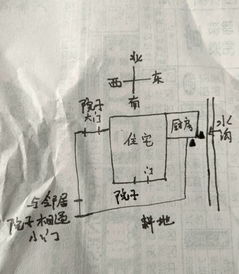 北
西 东
南
院子
大门
住宅
厨房
水沟
门
院子
与邻居
院子相通
小门
耕地